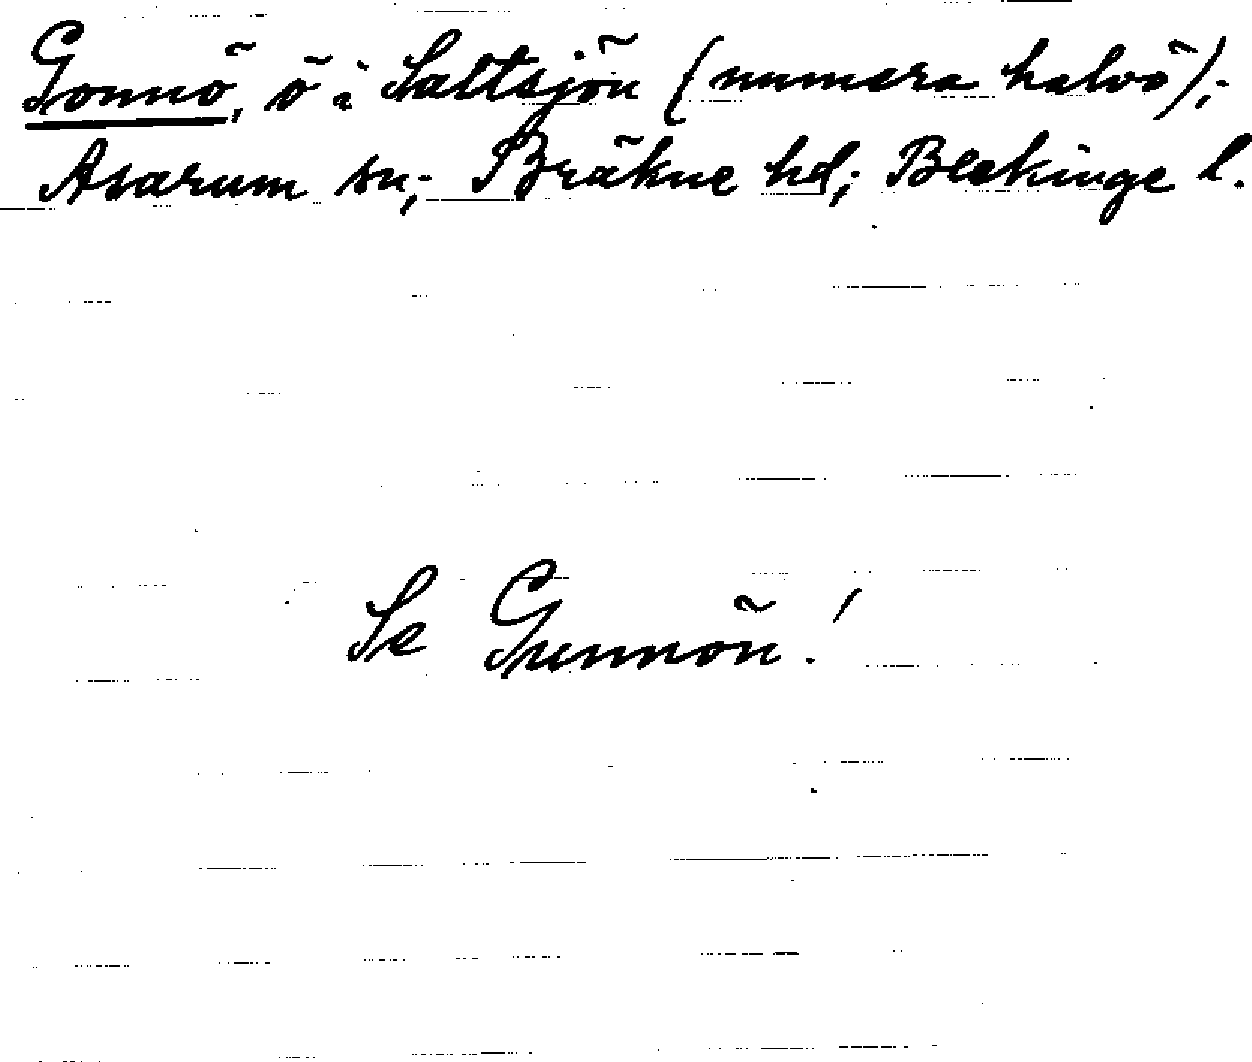 Gonnö, ö i Saltsjön (numera halvö);
Asarum sn; Bräkne hd; Blekinge l.
Se Gunnön!